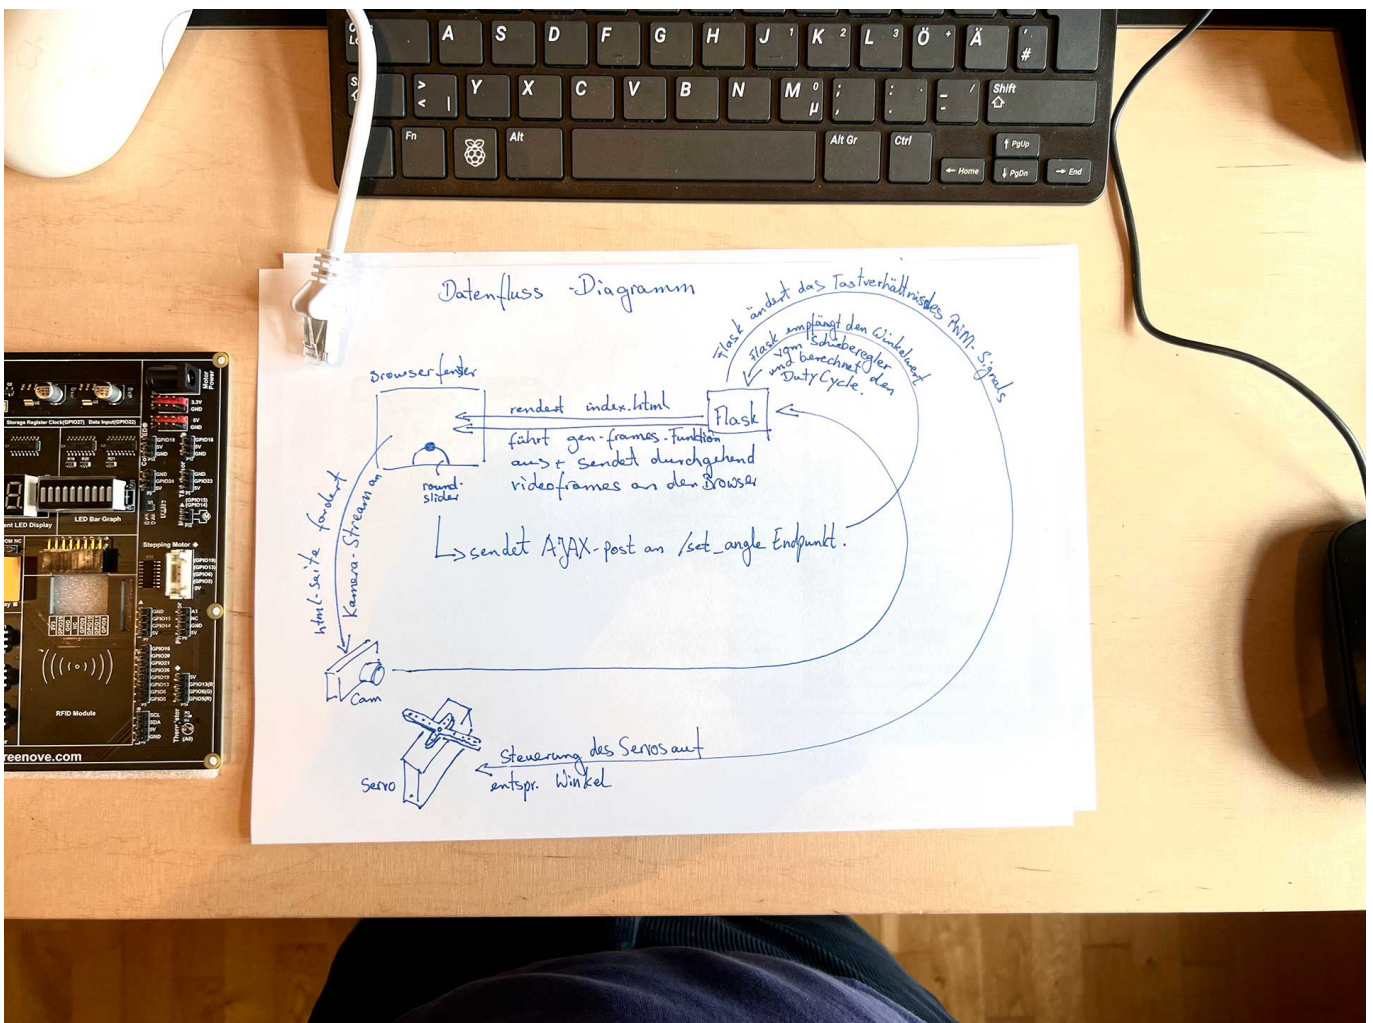 A S D F G H J 1 K 2 L 3 Ö + Ä ' #
> < | Y X C V B N M 0 µ ; , : . _ - / Shift
Fn Alt Alt Gr Ctrl ↑ PgUp
← Home ↓ PgDn → End
Datenfluss - Diagramm
Flask ändert das Tastverhältnis des PWM-Signals
Flask empfängt den Winkelwert
vom Schieberegler
und berechnet den
DutyCycle.
Browserfenster
Flask
rendert index.html
führt gen-frames-Funktion
aus + sendet durchgehend
videoframes an den Browser
round-
slider
sendet AJAX-post an /set_angle Endpunkt.
html-seite fordert
Kamera-Stream an
Cam
Servo
Steuerung des Servos auf
entspr. Winkel
Motor
Power
3.3V
GND
5V
GND
Storage Register Clock(GPIO27) Data Input(GPIO22)
GPIO18
5V
GND
GPIO18
5V
GND
GND
GPIO24
5V
GND
GPIO23
5V
ent LED Display
LED Bar Graph
Stepping Motor
RFID Module
SCL
SDA
5V
GND
reenove.com